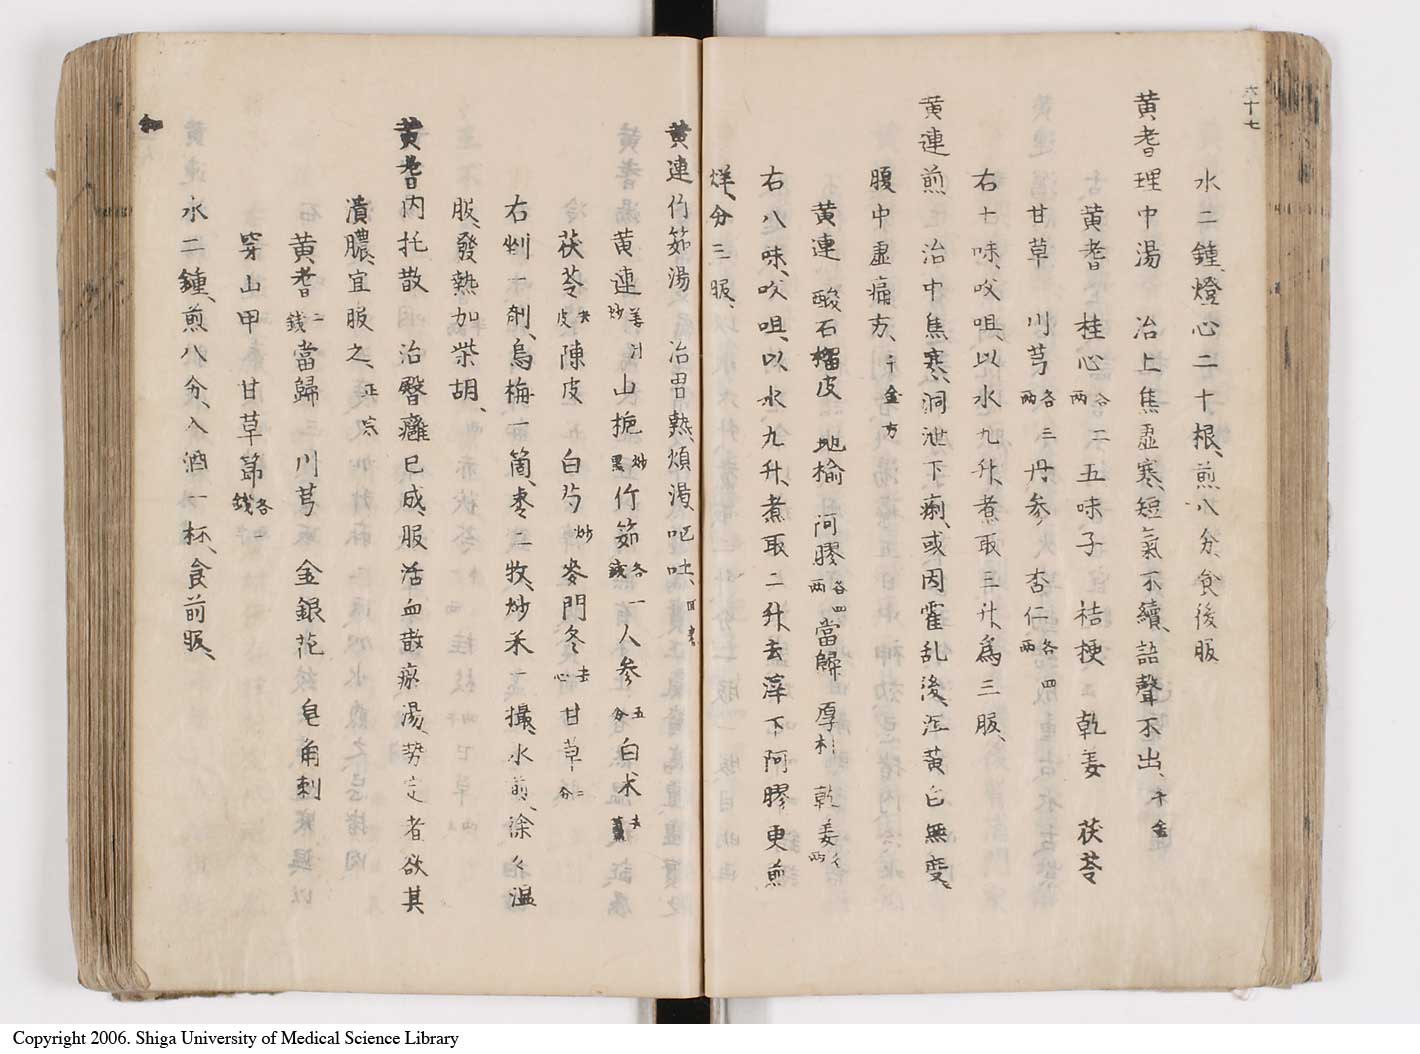 六十七
水二鍾、燈心二十根、煎八分、食後服
黄耆理中湯 治上焦虚寒、短氣不續、語聲不出、千金
黄耆 桂心各二両 五味子 桔梗 乾姜 茯苓
甘草 川芎各三両 丹参 杏仁各四両
右十味、㕮咀、以水九升、煮取三升、為三服、
黄連煎 治中焦寒、洞泄下痢、或因霍乱後、泻黄白無度、
腹中虚痛方、千金方
黄連 酸石榴皮 地榆 阿膠各四両 當歸 厚朴 乾姜各両
右八味、㕮咀、以水九升、煮取三升、去滓、下阿膠、更煎
烊、分三服、
黄連竹茹湯 治胃熱、煩渴、呕吐、回春
黄連姜汁炒 山梔炒黒 竹茹各一錢 人参五分 白术去蘆
茯苓去皮 陳皮 白芍炒 麥門冬去心 甘草二分
右剉一劑、烏梅一箇、棗二牧、炒米一撮、水煎、徐々温
服、發熱加柴胡、
黄耆内托散 治臀癰已成、服活血散瘀湯、势定者欲其
潰膿、宜服之、正宗
黄耆二錢 當歸 川芎 金銀花 皂角刺
穿山甲 甘草節各一錢
水二鍾、煎八分、入酒一杯、食前服、
Copyright 2006. Shiga University of Medical Science Library